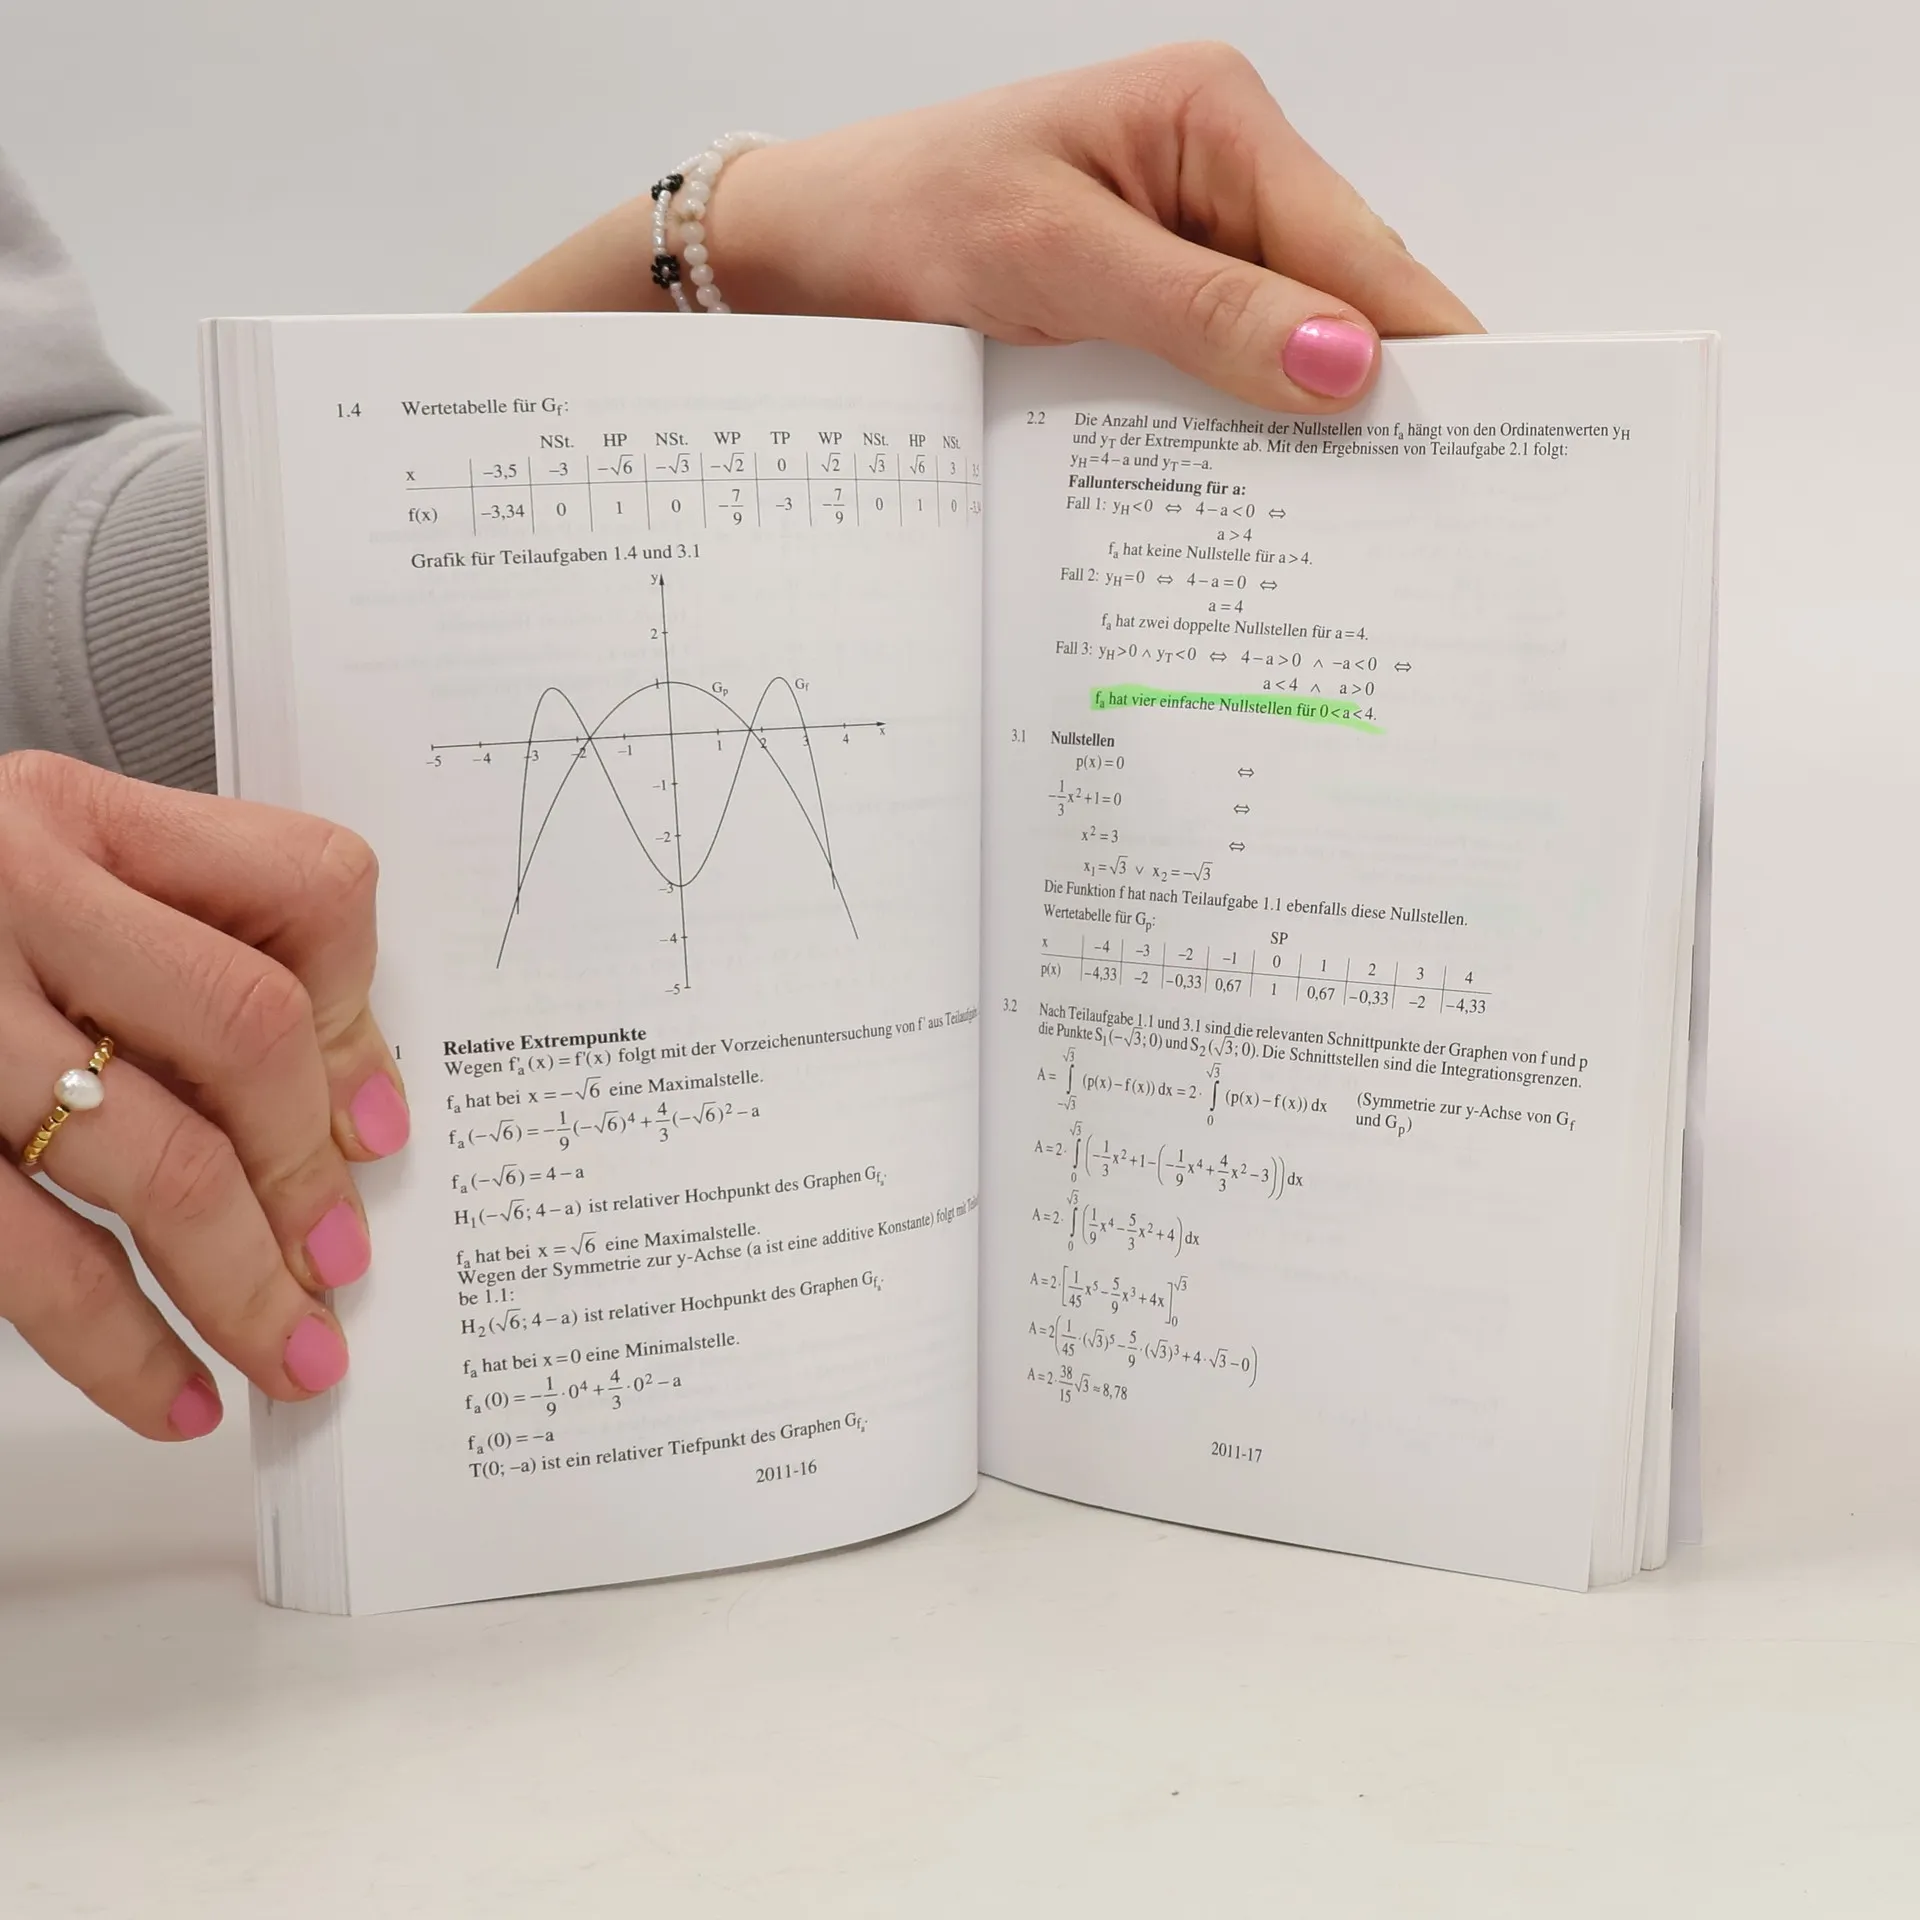 1.4 Wertetabelle für G_f:
NSt. HP NSt. WP TP WP NSt. HP NSt.
x −3,5 −3 −√6 −√3 −√2 0 √2 √3 √6 3
f(x) −3,34 0 1 0 −7/9 −3 −7/9 0 1 0
Grafik für Teilaufgaben 1.4 und 3.1
y
2
1 G_p G_f
−5 −4 −3 −2 −1 1 2 3 4 x
−1
−2
−3
−4
−5
1 Relative Extrempunkte
Wegen f'_a(x) = f'(x) folgt mit der Vorzeichenuntersuchung von f' aus
f_a hat bei x = −√6 eine Maximalstelle.
f_a(−√6) = −1/9(−√6)⁴ + 4/3(−√6)² − a
f_a(−√6) = 4 − a
H₁(−√6; 4 − a) ist relativer Hochpunkt des Graphen G_{f_a}.
f_a hat bei x = √6 eine Maximalstelle.
Wegen der Symmetrie zur y-Achse (a ist eine additive Konstante) folgt mit
be 1.1:
H₂(√6; 4 − a) ist relativer Hochpunkt des Graphen G_{f_a}.
f_a hat bei x = 0 eine Minimalstelle.
f_a(0) = −1/9 · 0⁴ + 4/3 · 0² − a
f_a(0) = −a
T(0; −a) ist ein relativer Tiefpunkt des Graphen G_{f_a}.
2011-16
2.2 Die Anzahl und Vielfachheit der Nullstellen von f_a hängt von den Ordinatenwerten y_H
und y_T der Extrempunkte ab. Mit den Ergebnissen von Teilaufgabe 2.1 folgt:
y_H = 4 − a und y_T = −a.
Fallunterscheidung für a:
Fall 1: y_H < 0 ⇔ 4 − a < 0 ⇔
a > 4
f_a hat keine Nullstelle für a > 4.
Fall 2: y_H = 0 ⇔ 4 − a = 0 ⇔
a = 4
f_a hat zwei doppelte Nullstellen für a = 4.
Fall 3: y_H > 0 ∧ y_T < 0 ⇔ 4 − a > 0 ∧ −a < 0 ⇔
a < 4 ∧ a > 0
f_a hat vier einfache Nullstellen für 0 < a < 4.
3.1 Nullstellen
p(x) = 0 ⇔
−1/3 x² + 1 = 0 ⇔
x² = 3 ⇔
x₁ = √3 ∨ x₂ = −√3
Die Funktion f hat nach Teilaufgabe 1.1 ebenfalls diese Nullstellen.
Wertetabelle für G_p:
SP
x −4 −3 −2 −1 0 1 2 3 4
p(x) −4,33 −2 −0,33 0,67 1 0,67 −0,33 −2 −4,33
3.2 Nach Teilaufgabe 1.1 und 3.1 sind die relevanten Schnittpunkte der Graphen von f und p
die Punkte S₁(−√3; 0) und S₂(√3; 0). Die Schnittstellen sind die Integrationsgrenzen.
A = ∫_{−√3}^{√3} (p(x) − f(x)) dx = 2 · ∫_0^{√3} (p(x) − f(x)) dx (Symmetrie zur y-Achse von G_f
und G_p)
A = 2 · ∫_0^{√3} (−1/3 x² + 1 − (−1/9 x⁴ + 4/3 x² − 3)) dx
A = 2 · ∫_0^{√3} (1/9 x⁴ − 5/3 x² + 4) dx
A = 2 · [1/45 x⁵ − 5/9 x³ + 4x]_0^{√3}
A = 2(1/45 · (√3)⁵ − 5/9 · (√3)³ + 4 · √3 − 0)
A = 2 · 38/15 √3 ≈ 8,78
2011-17